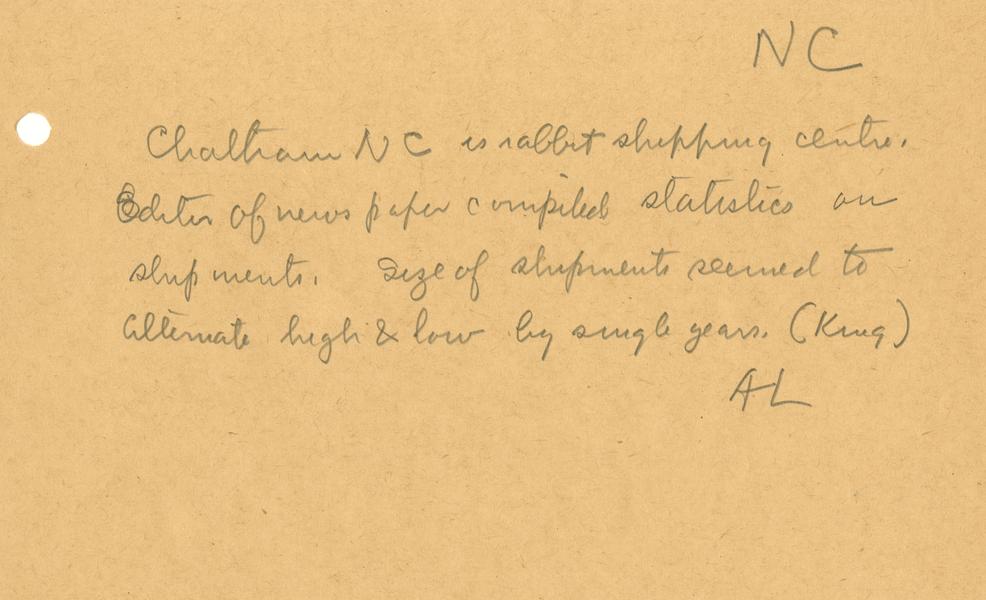 NC
Chatham NC is rabbit shipping centre.
Editor of news paper compiled statistics on
shipments. Size of shipments seemed to
alternate high & low by single years. (King)
AL